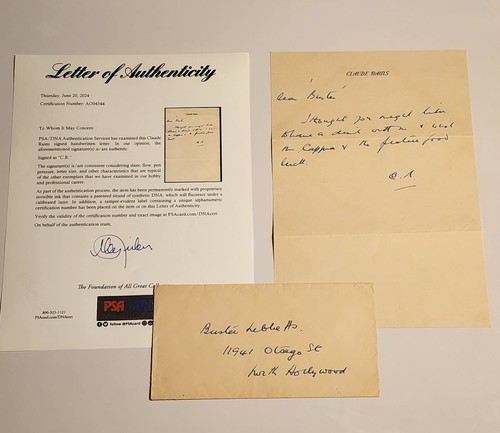 Letter of Authenticity
Thursday, June 20, 2024
Certification Number: AC04544
To Whom It May Concern:
PSA/DNA Authentication Services has examined this Claude
Rains signed handwritten letter. In our opinion, the
aforementioned signature(s) is/are authentic.
Signed as "C.R."
The signature(s) is/are consistent considering slant, flow, pen
pressure, letter size, and other characteristics that are typical
of the other exemplars that we have examined in our hobby
and professional career.
As part of the authentication process, the item has been permanently marked with proprietary
invisible ink that contains a patented strand of synthetic DNA, which will fluoresce under a
calibrated laser. In addition, a tamper-evident label containing a unique alphanumeric
certification number has been placed on the item or on this Letter of Authenticity.
Verify the validity of the certification number and exact image at PSAcard.com/DNAcert
On behalf of the authentication team,
The Foundation of All Great
800-325-1121
PSAcard.com/DNAcert
PSA
follow @PSAcard
CLAUDE RAINS
Dear "Buster"
I thought you might like
to have a drink with me & wish
the Cappra & the picture good
luck.
C. R.
Buster
11941 Otsego St
North Hollywood